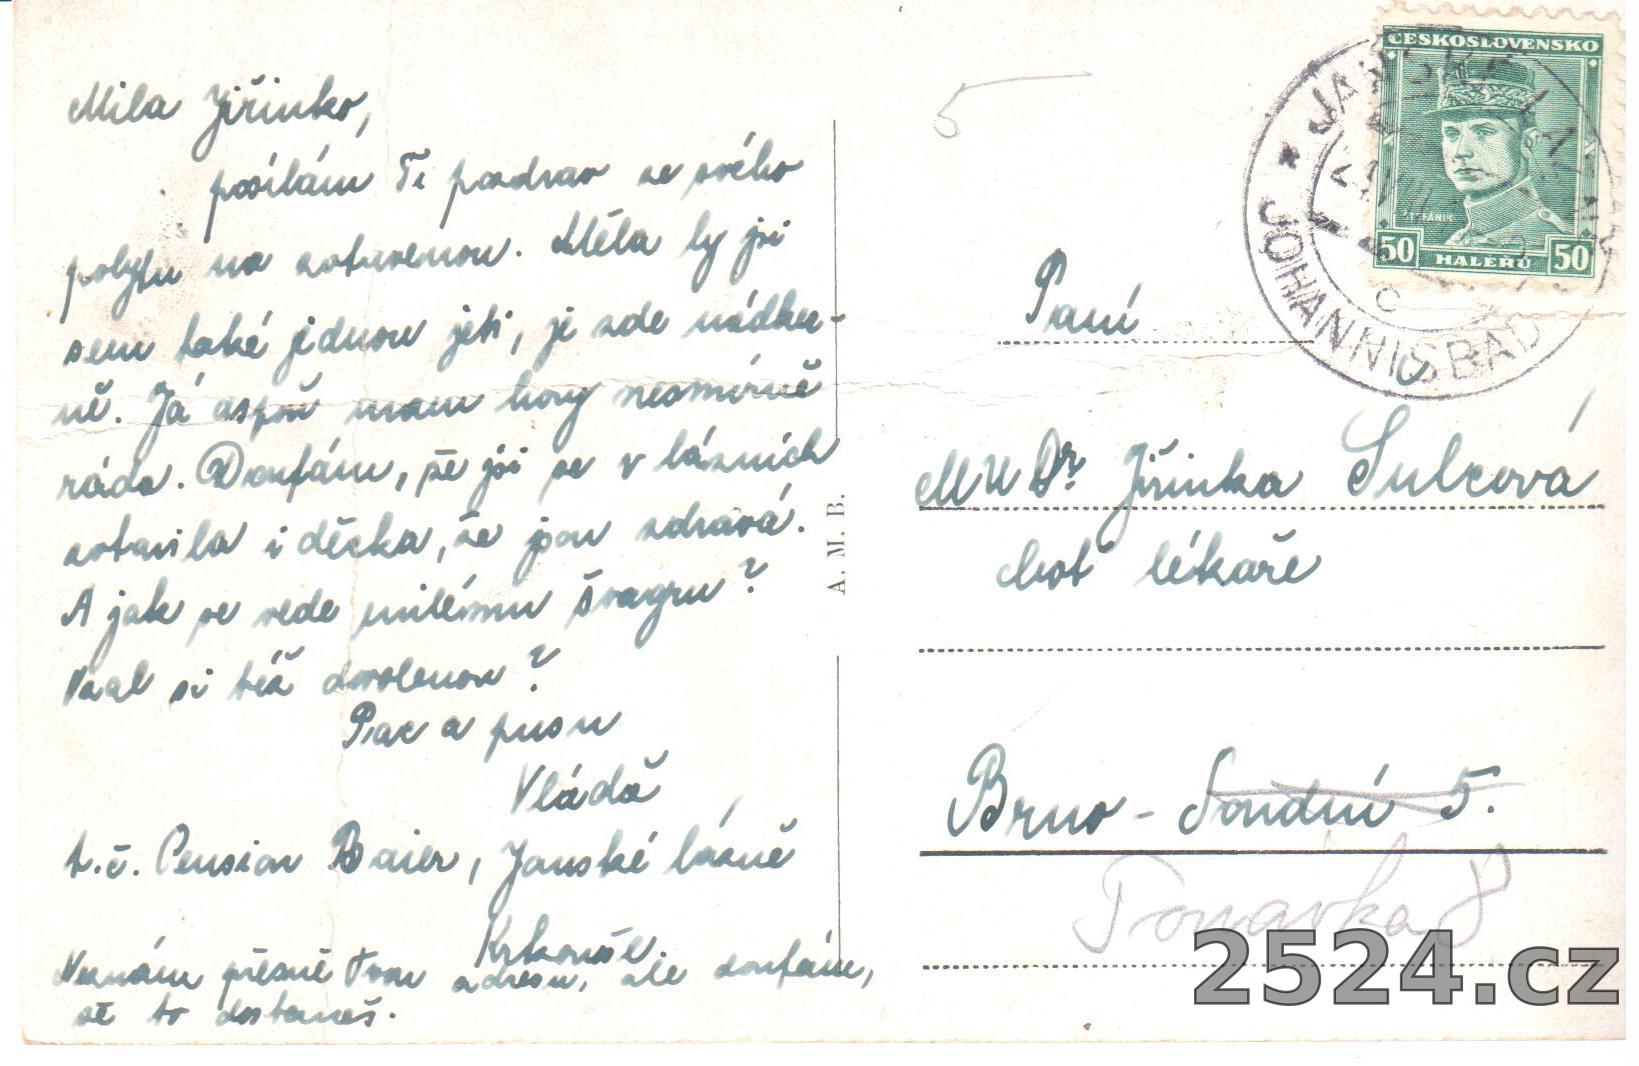 Milá Jiřinko,
posílám Ti pozdrav ze svého
pobytu na zotavenou. Měla by jsi
sem také jednou jeti, je zde nádher-
ně. Já aspoň mam hory nesmírně
ráda. Doufám, že jsi se v lázních
zotavila i děcka, že jsou zdravá.
A jak se vede milému švagru?
Vzal si též dovolenou?
Pac a pusu
Vláďa
t.č. Pension Baier, Janské lázně
Krkonoše
Neznám přesně Tvou adresu, ale doufám,
že to dostaneš.
A. M. B.
5
ČESKOSLOVENSKO
ŠTEFÁNIK
50 HALÉŘŮ 50
JANSKÉ LÁZNĚ
JOHANNISBAD
C
Paní
MUDr Jiřinka Šulcová
choť lékaře
Brno - Soudní 5.
Ponávka 8
2524.cz